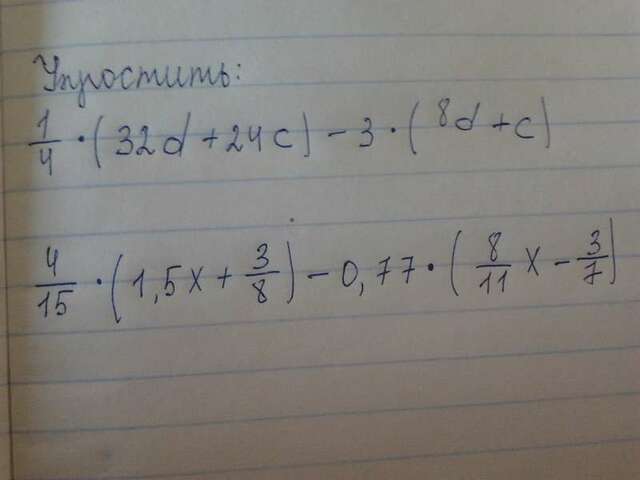 Упростить:
1/4 · (32d + 24c) − 3 · (8d + c)
4/15 · (1,5x + 3/8) − 0,77 · (8/11 x − 3/7)